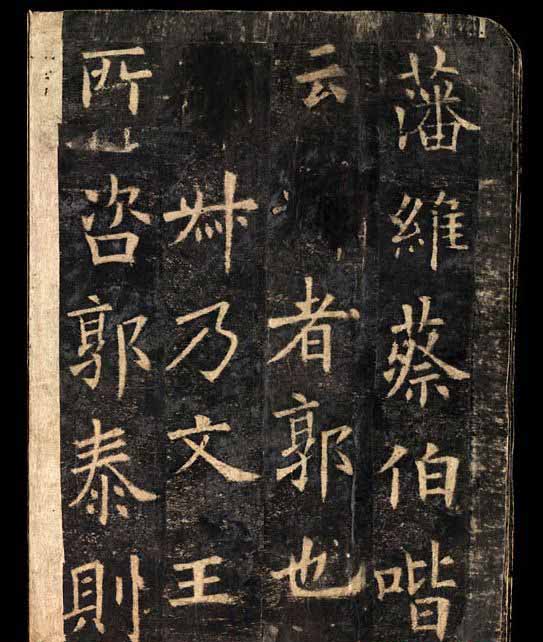 藩維蔡伯喈
云者郭也
叔乃文王
所咨郭泰則